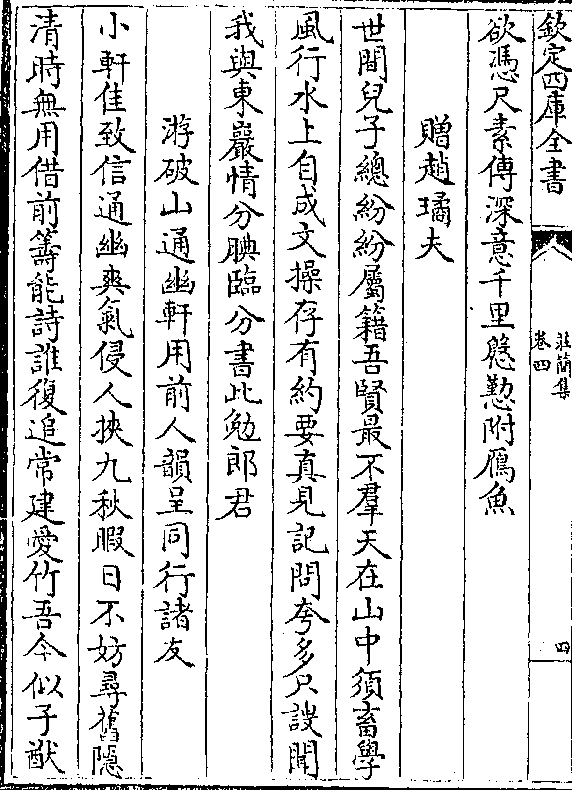 欽定四庫全書
莊簡集
卷四
四
欲憑尺素傳深意千里慇懃附鴈魚
贈趙璚夫
世間兒子總紛紛屬籍吾賢最不羣天在山中須畜學
風行水上自成文操存有約要真見記問夸多只謏聞
我與東巖情分腆臨分書此勉郎君
游破山通幽軒用前人韻呈同行諸友
小軒佳致信通幽爽氣侵人挾九秋暇日不妨尋舊隠
清時無用借前籌能詩誰復追常建愛竹吾今似子猷